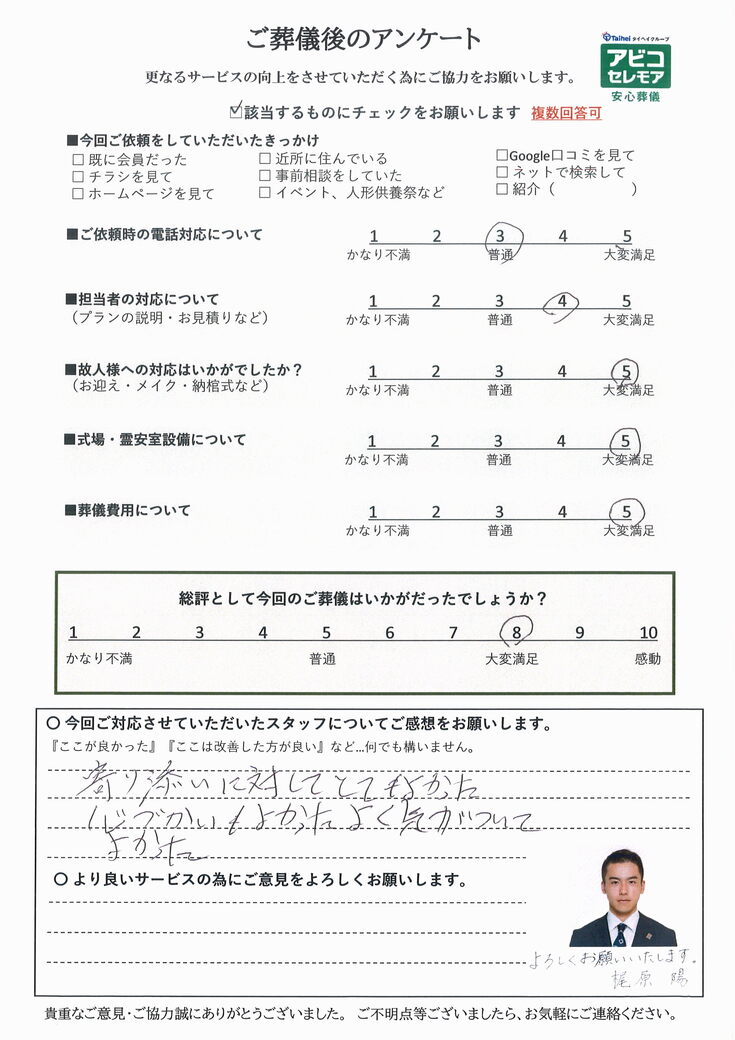 ご葬儀後のアンケート
Taihei タイヘイグループ
アビコ
セレモア
安心葬儀
更なるサービスの向上をさせていただく為にご協力をお願いします。
☑該当するものにチェックをお願いします 複数回答可
■今回ご依頼をしていただいたきっかけ
□ 既に会員だった □ 近所に住んでいる □Google口コミを見て
□ チラシを見て □ 事前相談をしていた □ ネットで検索して
□ ホームページを見て □ イベント、人形供養祭など □ 紹介（ ）
■ご依頼時の電話対応について 1 2 3 4 5
かなり不満 普通 大変満足
■担当者の対応について 1 2 3 4 5
（プランの説明・お見積りなど） かなり不満 普通 大変満足
■故人様への対応はいかがでしたか？ 1 2 3 4 5
（お迎え・メイク・納棺式など） かなり不満 普通 大変満足
■式場・霊安室設備について 1 2 3 4 5
かなり不満 普通 大変満足
■葬儀費用について 1 2 3 4 5
かなり不満 普通 大変満足
総評として今回のご葬儀はいかがだったでしょうか？
1 2 3 4 5 6 7 8 9 10
かなり不満 普通 大変満足 感動
〇 今回ご対応させていただいたスタッフについてご感想をお願いします。
『ここが良かった』『ここは改善した方が良い』など…何でも構いません。
寄り添いに対してとてもよかった
心づかいもよかった よく気がついて
よかった
〇 より良いサービスの為にご意見をよろしくお願いします。
よろしくお願いいたします。
梶原 陽
貴重なご意見・ご協力誠にありがとうございました。 ご不明点等ございましたら、お気軽にご連絡ください。